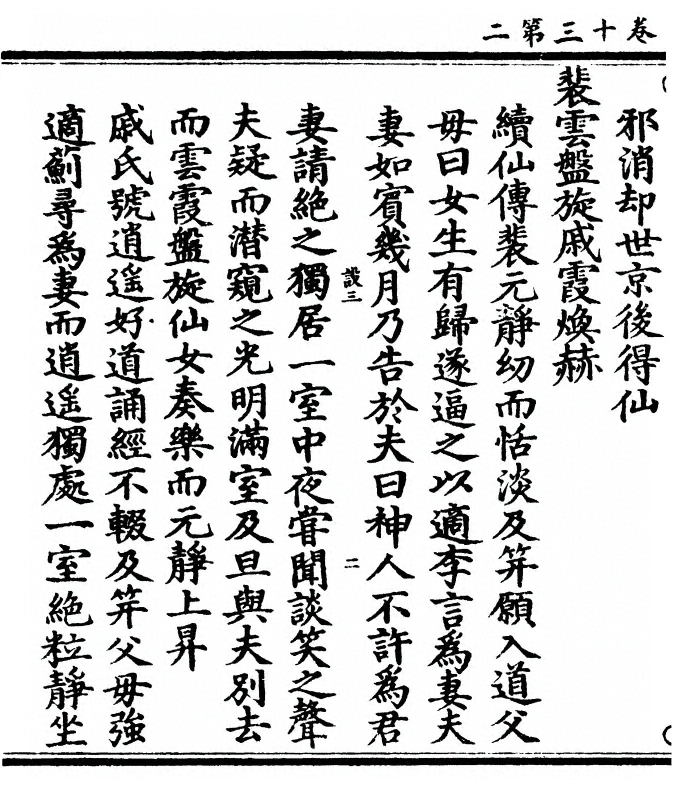 卷十三第二
邪消却世京後得仙
裴雲盤旋戚霞煥赫
續仙傳裴元靜幼而恬淡及笄願入道父
毋曰女生有歸遂逼之以適李言爲妻夫
妻如賓幾月乃告於夫曰神人不許爲君
二
設三
妻請絶之獨居一室中夜甞聞談笑之聲
夫疑而潜窺之光明滿室及旦與夫别去
而雲霞盤旋仙女奏樂而元靜上昇
戚氏號逍遥好道誦經不輟及笄父毋強
適薊尋爲妻而逍遥獨處一室絶粒靜坐